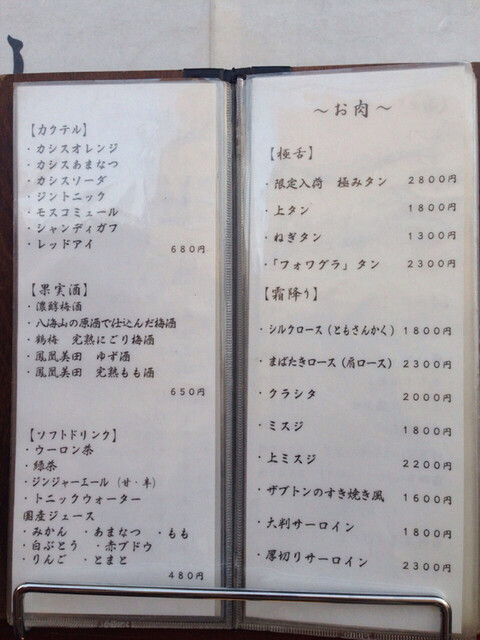 【カクテル】
・カシスオレンジ
・カシスあまなつ
・カシスソーダ
・ジントニック
・モスコミュール
・シャンディガフ
・レッドアイ
680円
【果実酒】
・濃醇梅酒
・八海山の原酒で仕込んだ梅酒
・鶴梅 完熟にごり梅酒
・鳳凰美田 ゆず酒
・鳳凰美田 完熟もも酒
650円
【ソフトドリンク】
・ウーロン茶
・緑茶
・ジンジャーエール (甘・辛)
・トニックウォーター
国産ジュース
・みかん ・あまなつ ・もも
・白ぶとう ・赤ブドウ
・りんご ・とまと
480円
～お肉～
【極舌】
・限定入荷 極みタン 2800円
・上タン 1800円
・ねぎタン 1300円
・「フォワグラ」タン 2300円
【霜降り】
・シルクロース(ともさんかく) 1800円
・まばたきロース(肩ロース) 2300円
・クラシタ 2000円
・ミスジ 1800円
・上ミスジ 2200円
・ザブトンのすき焼き風 1600円
・大判サーロイン 1800円
・厚切りサーロイン 2300円